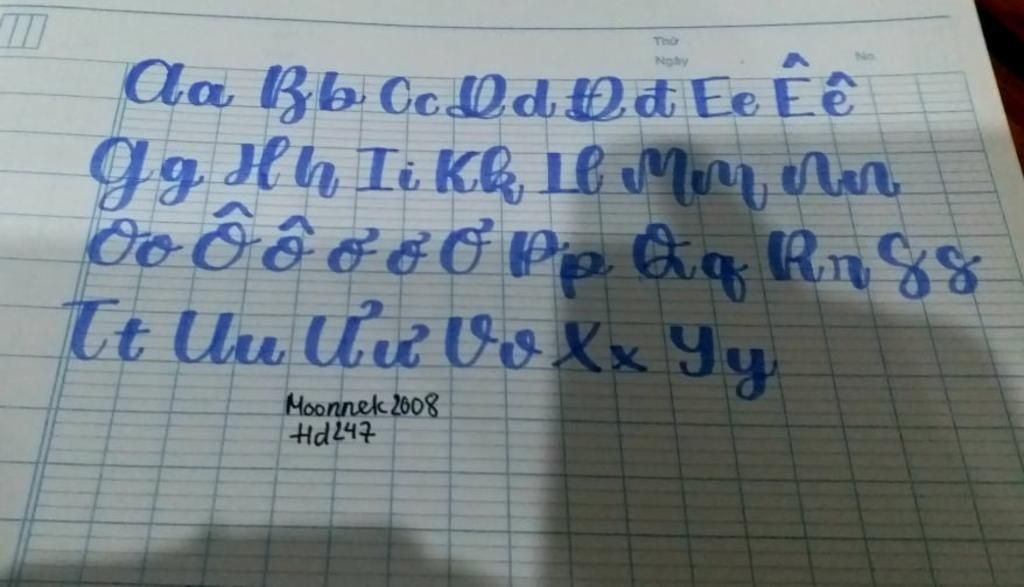 Thứ
Ngày
No.
Aa Bb Cc Dd Đđ Ee Êê
Gg Hh Ii Kk Ll Mm Nn
Oo Ôô ơ ơ Ơ Pp Qq Rr Ss
Tt Uu Ưư Vv Xx Yy
Moonnek2008
Hd247